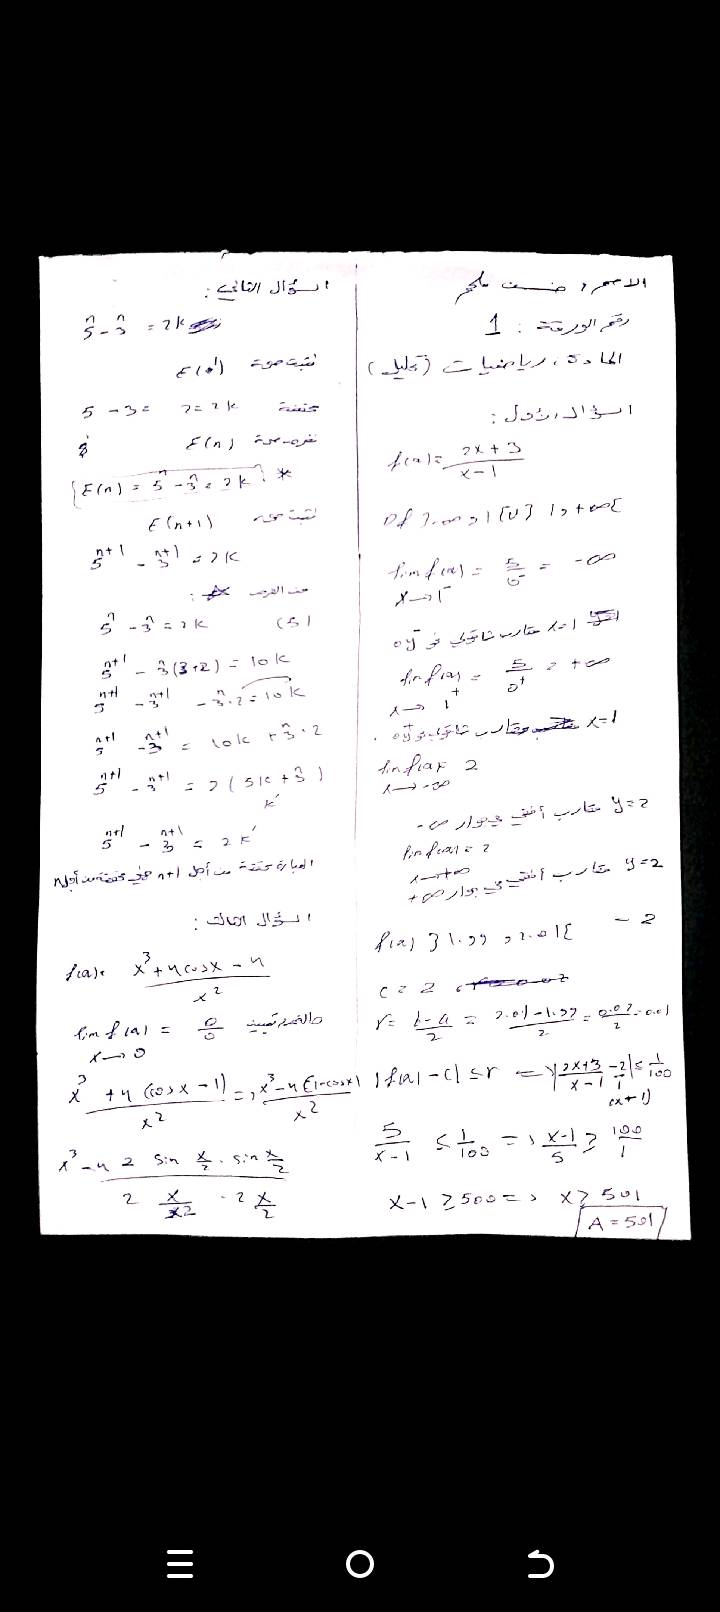 الاسم :
رقم الورقة : 1
المادة : رياضيات (تحليل)
السؤال الأول :
f(x) = 2x + 3 / x - 1
lim f(x) = 5 / 0⁻ = -∞
x → 1⁻
x = 1 مقارب شاقولي نحو oy⁻
lim f(x) = 5 / 0⁺ = +∞
x → 1⁺
x = 1 مقارب شاقولي نحو oy⁺ .
lim f(x) = 2
x → -∞
y = 2 مقارب أفقي في جوار -∞
lim f(x) = 2
x → +∞
y = 2 مقارب أفقي في جوار +∞
f(x) ∋ ]1.99 , 2.01[ - 2
c = 2
r = b - a / 2 = 2.01 - 1.99 / 2 = 0.02 / 2 = 0.01
|f(x) - c| ≤ r => |2x + 3 / x - 1 - 2 / 1| ≤ 1 / 100
5 / x - 1 ≤ 1 / 100 => x - 1 / 5 ≥ 100 / 1
x - 1 ≥ 500 => x ≥ 501
A = 501
السؤال الثاني :
5ⁿ - 3ⁿ = 2k
نثبت صحة
5 - 3 = 2 = 2k محققة
نفرض صحة E(n)
{E(n) = 5ⁿ - 3ⁿ = 2k} *
نثبت صحة E(n+1)
5ⁿ⁺¹ - 3ⁿ⁺¹ = 2k
من الفرض :
5ⁿ - 3ⁿ = 2k (5)
5ⁿ⁺¹ - 3ⁿ(3+2) = 10k
5ⁿ⁺¹ - 3ⁿ⁺¹ - 3ⁿ.2 = 10k
5ⁿ⁺¹ - 3ⁿ⁺¹ = 10k + 3ⁿ.2
5ⁿ⁺¹ - 3ⁿ⁺¹ = 2(5k + 3ⁿ)
k'
5ⁿ⁺¹ - 3ⁿ⁺¹ = 2k'
العبارة محققة من أجل n+1 فهي محققة من أجل n
السؤال الثالث :
f(x) = x³ + 4cosx - 4 / x²
lim f(x) = 0 / 0
x → 0
x³ + 4(cosx - 1) / x² => x³ - 4(1 - cosx) / x²
x³ - 4 2 sin x/2 . sin x/2
2 x/2 . 2 x/2